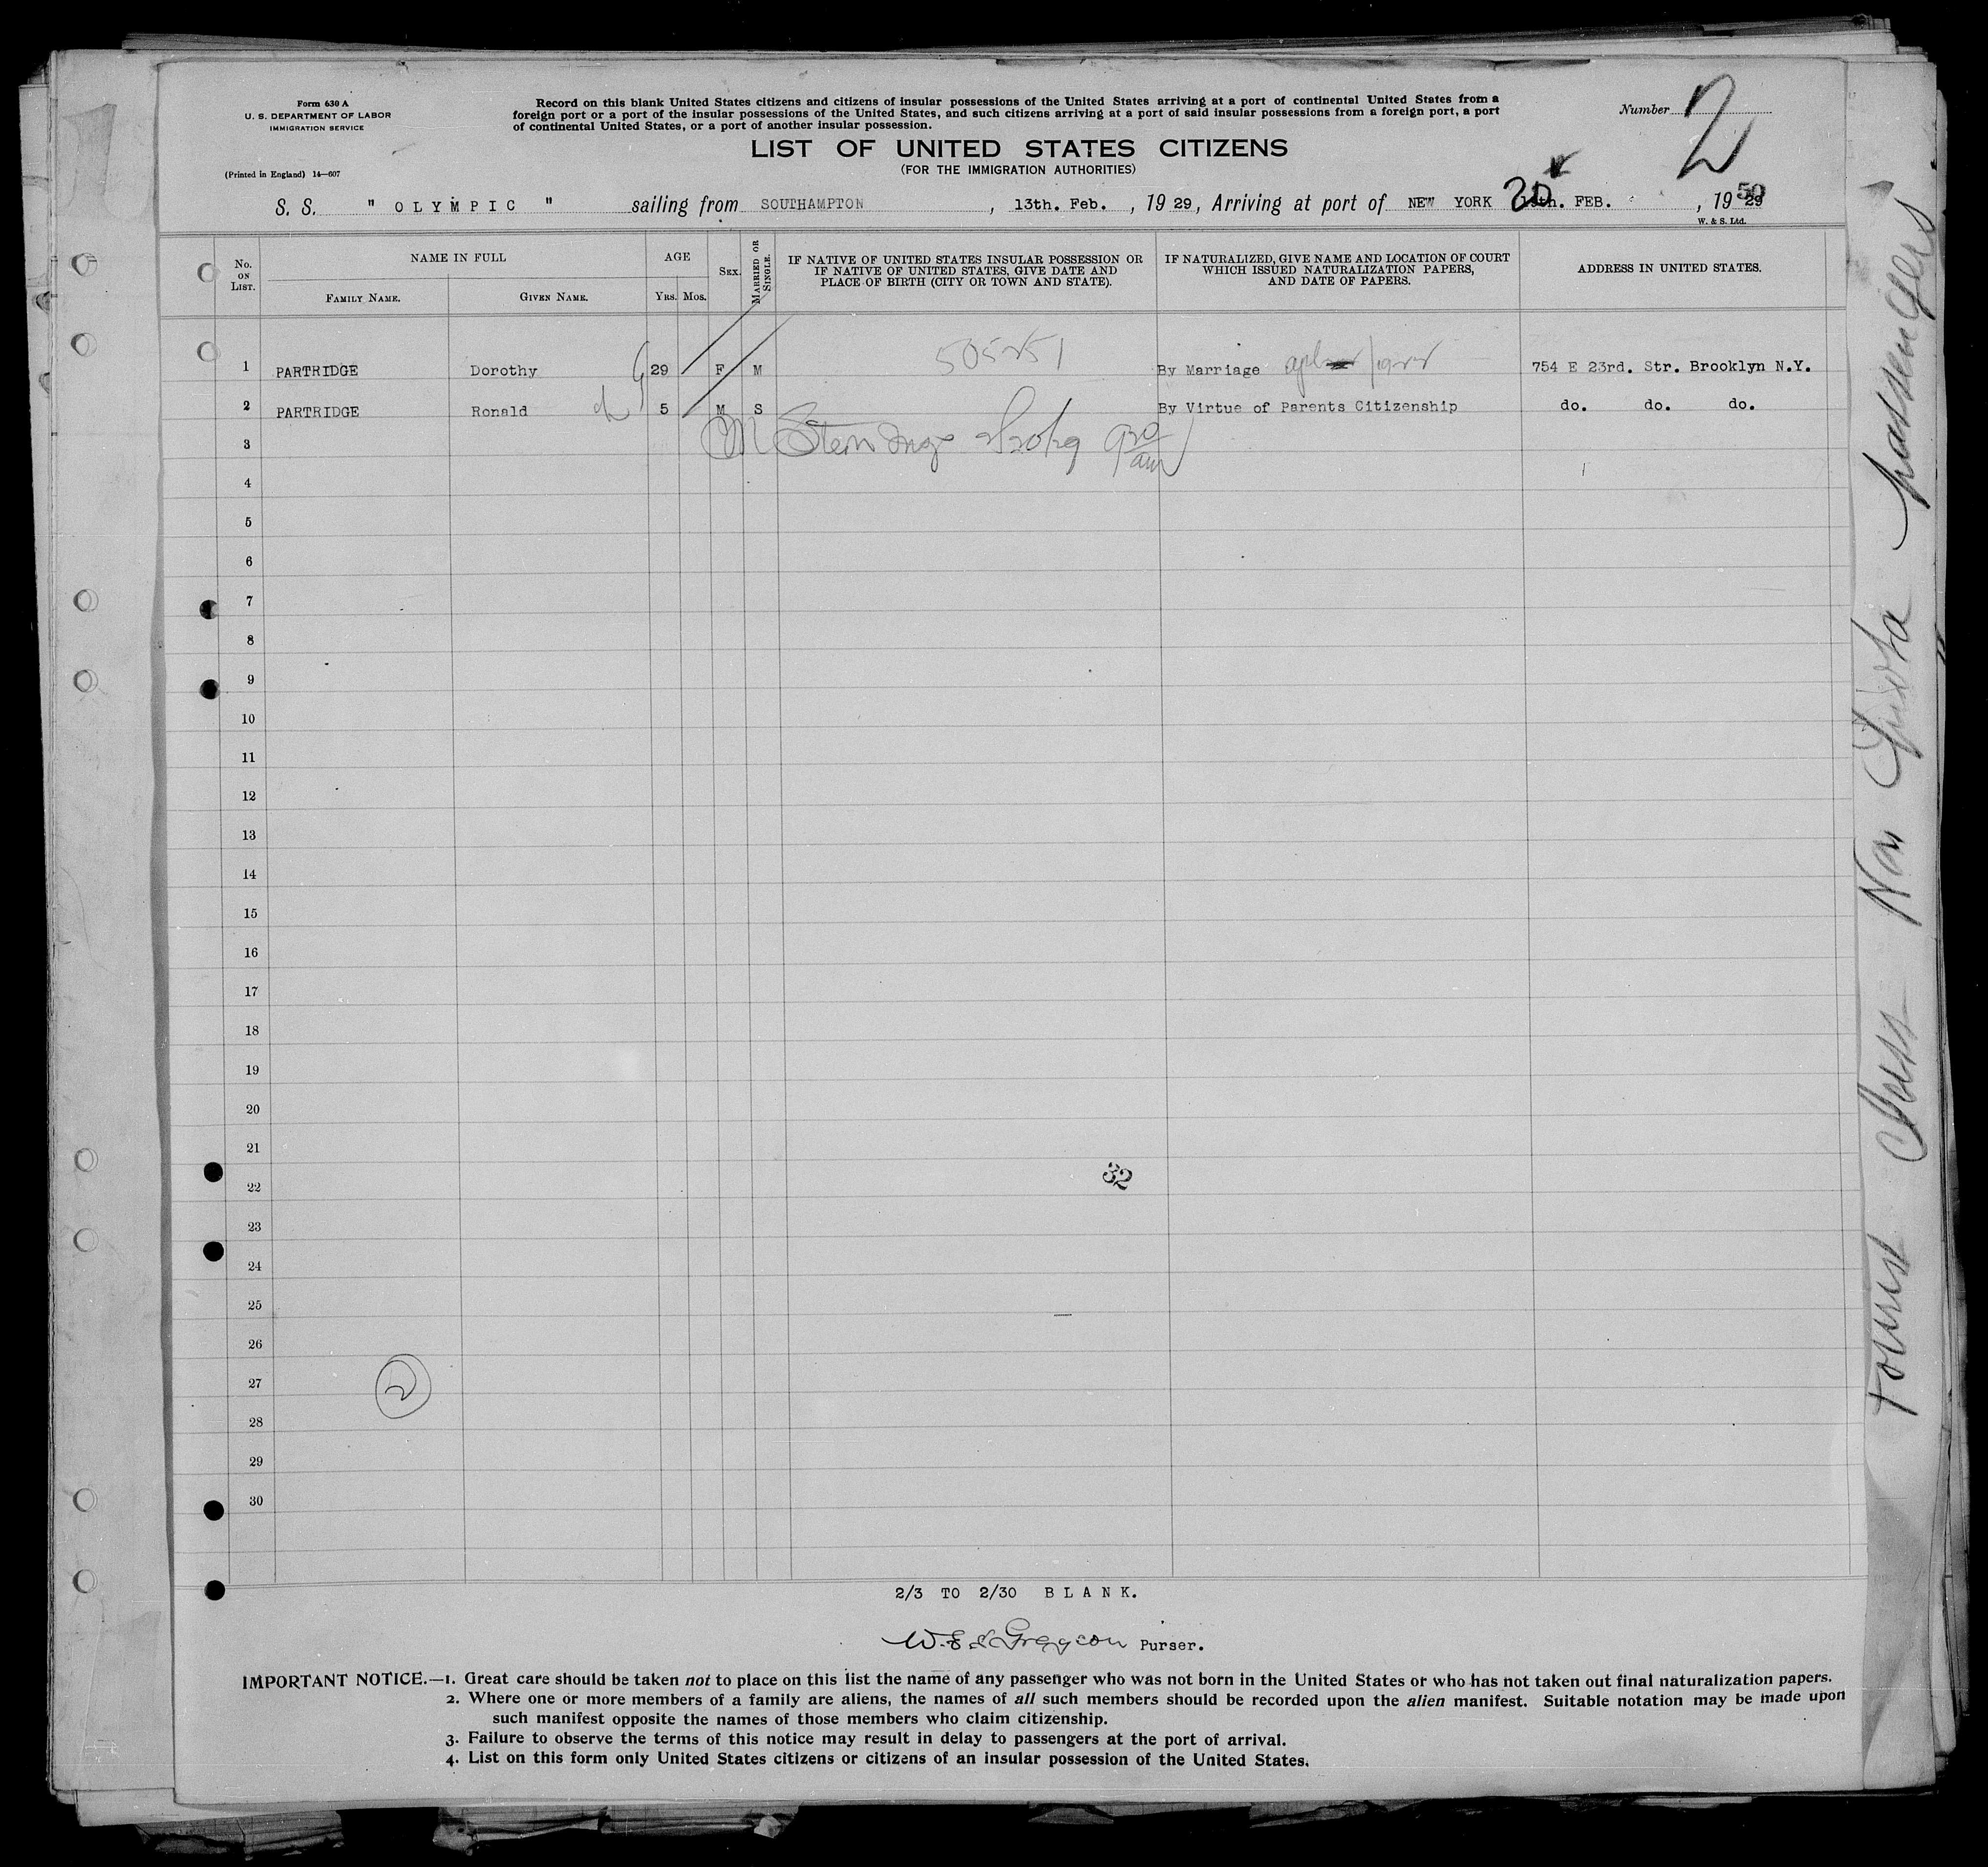 Form 630 A
U. S. DEPARTMENT OF LABOR
IMMIGRATION SERVICE
(Printed in England) 14—607
Record on this blank United States citizens and citizens of insular possessions of the United States arriving at a port of continental United States from a
foreign port or a port of the insular possessions of the United States, and such citizens arriving at a port of said insular possessions from a foreign port, a port
of continental United States, or a port of another insular possession.
Number 2
LIST OF UNITED STATES CITIZENS
(FOR THE IMMIGRATION AUTHORITIES)
S. S. " OLYMPIC " sailing from SOUTHAMPTON, 13th. Feb., 1929, Arriving at port of NEW YORK 20 FEB., 1929
W. & S. Ltd.
No. ON LIST.
NAME IN FULL
FAMILY NAME. GIVEN NAME.
AGE
YRS. MOS.
SEX.
MARRIED OR SINGLE.
IF NATIVE OF UNITED STATES INSULAR POSSESSION OR
IF NATIVE OF UNITED STATES, GIVE DATE AND
PLACE OF BIRTH (CITY OR TOWN AND STATE).
IF NATURALIZED, GIVE NAME AND LOCATION OF COURT
WHICH ISSUED NATURALIZATION PAPERS,
AND DATE OF PAPERS.
ADDRESS IN UNITED STATES.
505251
1 PARTRIDGE Dorothy 29 F M By Marriage 754 E 23rd. Str. Brooklyn N.Y.
2 PARTRIDGE Ronald 5 M S By Virtue of Parents Citizenship do. do. do.
3
4
5
6
7
8
9
10
11
12
13
14
15
16
17
18
19
20
21
32
22
23
24
25
26
27
2
28
29
30
2/3 TO 2/30 BLANK.
Purser.
IMPORTANT NOTICE.—1. Great care should be taken not to place on this list the name of any passenger who was not born in the United States or who has not taken out final naturalization papers.
2. Where one or more members of a family are aliens, the names of all such members should be recorded upon the alien manifest. Suitable notation may be made upon
such manifest opposite the names of those members who claim citizenship.
3. Failure to observe the terms of this notice may result in delay to passengers at the port of arrival.
4. List on this form only United States citizens or citizens of an insular possession of the United States.
Tourist Class Non Quota passengers